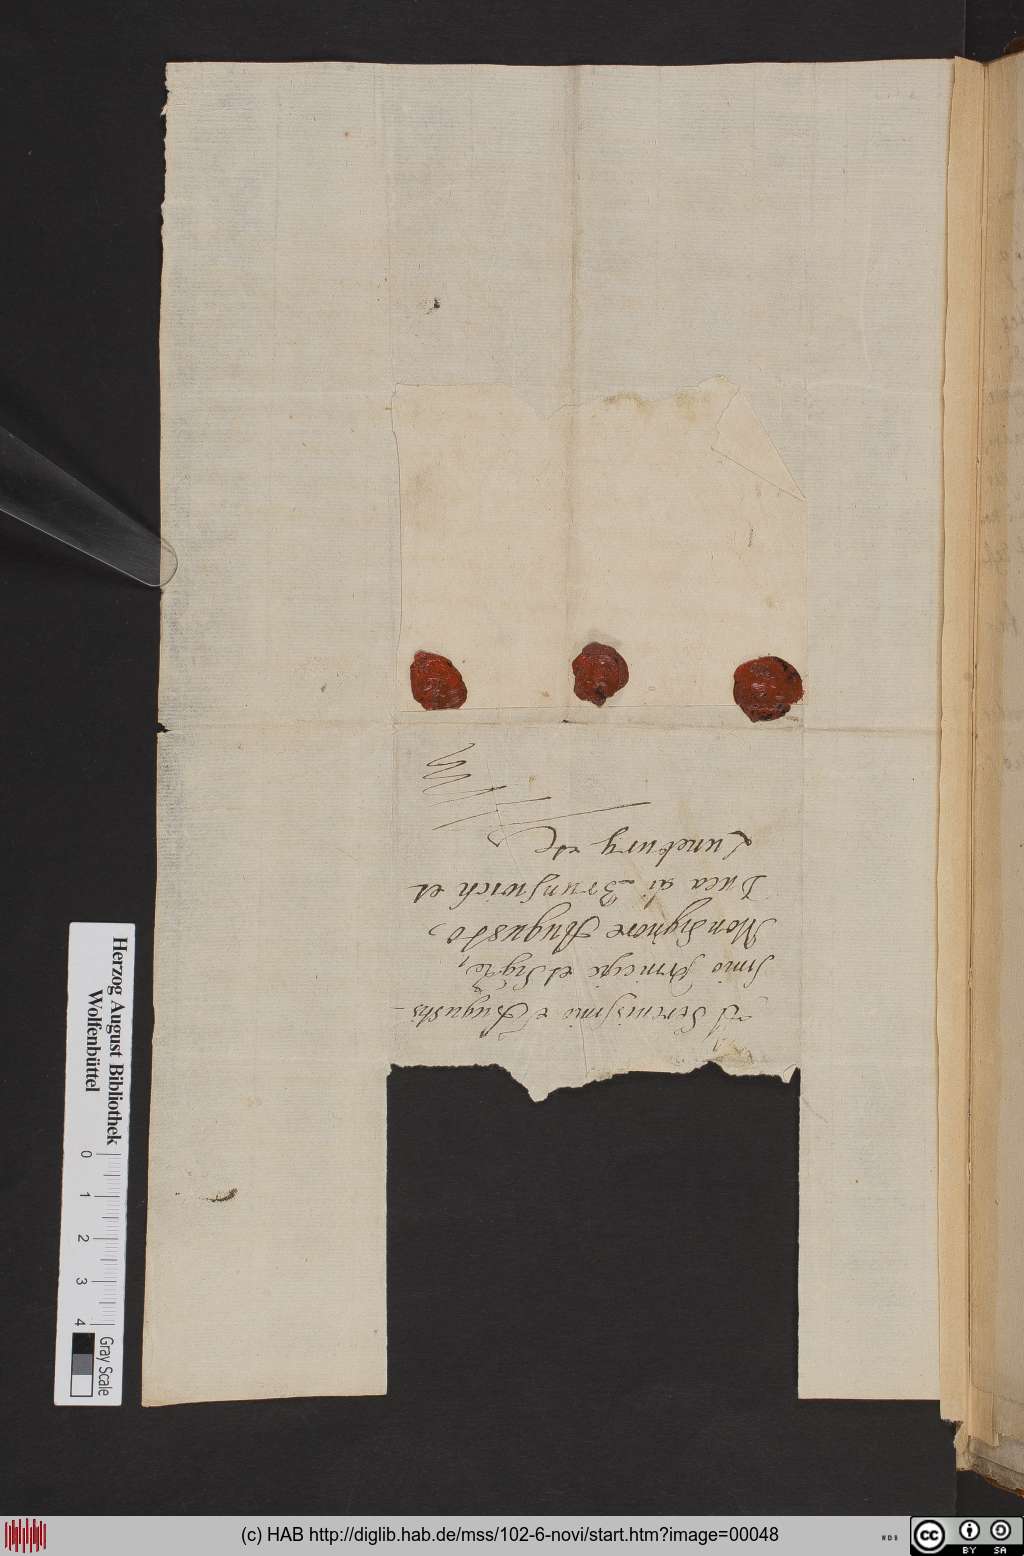 Al Serenissimo e Augustis-
simo Principe et Sigre,
Monsignore Augusto,
Duca di Brunswich et
Luneburg etc
Herzog August Bibliothek
Wolfenbüttel
0 1 2 3 4
Gray Scale
(c) HAB http://diglib.hab.de/mss/102-6-novi/start.htm?image=00048
WDB
cc BY SA